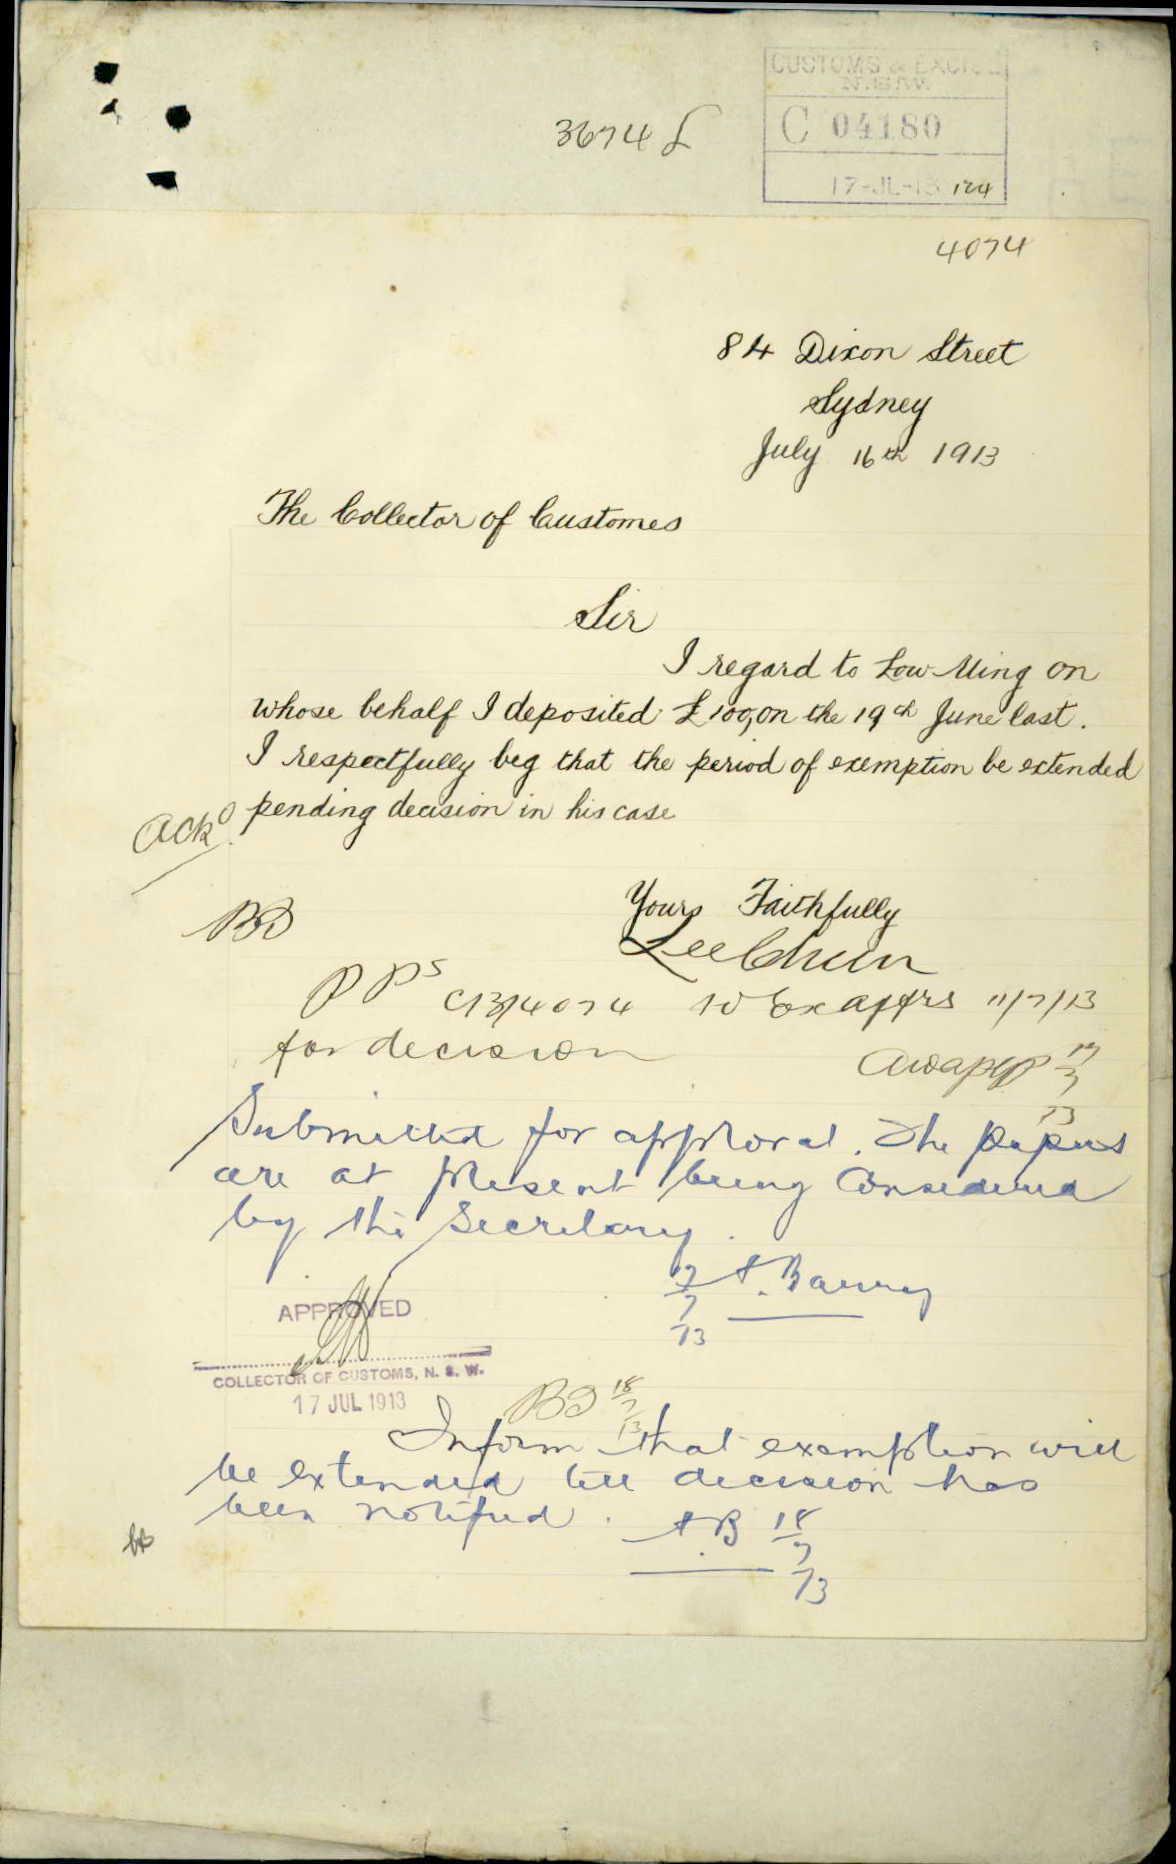 CUSTOMS & EXCISE
N.S.W.
3674 L
C 04180
17-JL-13 124
4074
84 Dixon Street
Sydney
July 16th 1913
The Collector of Customes
Sir
I regard to Low Ming on
whose behalf I deposited £100, on the 19th June last.
I respectfully beg that the period of exemption be extended
pending decision in his case
Ackd.
Yours Faithfully
Lee Chun
BB
PPs C13/4074 to Ex 11/7/13
for decision
17/7/13
Submitted for approval. The papers
are at present being considered
by the Secretary.
17/7/13 A. Barkley
APPROVED
COLLECTOR OF CUSTOMS, N. S. W.
17 JUL 1913
BB 18/7/13
Inform that exemption will
be extended till decision has
been notified.
A.B 18/7/13